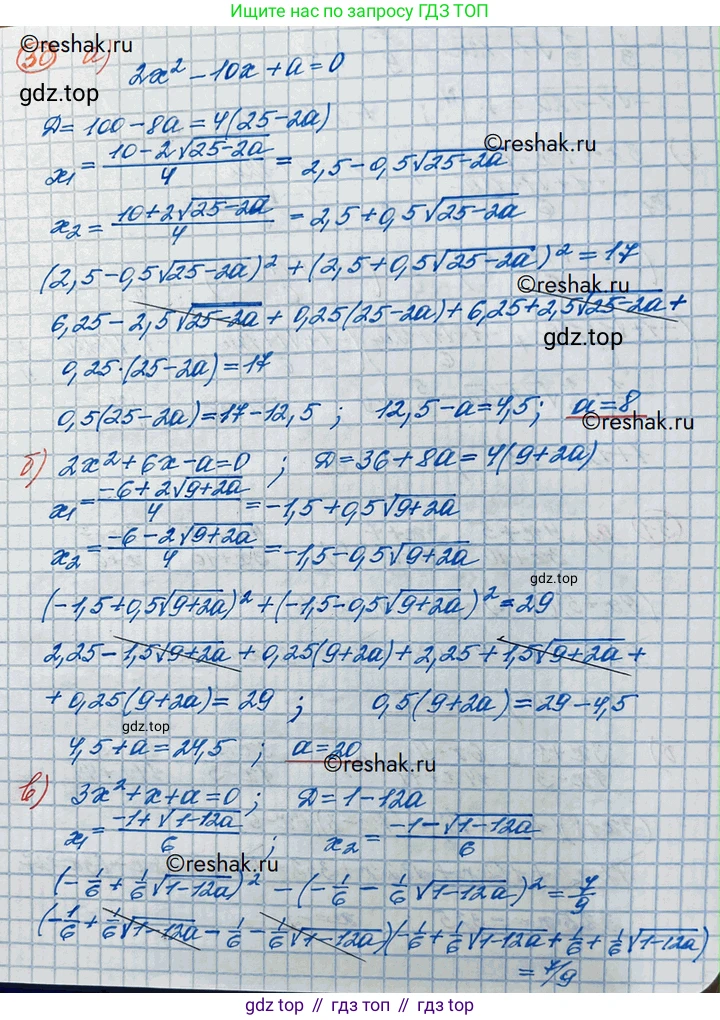 Ищите нас по запросу ГДЗ ТОП
©reshak.ru
gdz.top
30 а) 2x² − 10x + a = 0
Д = 100 − 8a = 4(25 − 2a)
©reshak.ru
x₁ = (10 − 2√(25−2a))/4 = 2,5 − 0,5√(25−2a)
x₂ = (10 + 2√(25−2a))/4 = 2,5 + 0,5√(25−2a)
(2,5 − 0,5√(25−2a))² + (2,5 + 0,5√(25−2a))² = 17
©reshak.ru
6,25 − 2,5√(25−2a) + 0,25(25−2a) + 6,25 + 2,5√(25−2a) +
gdz.top
0,25·(25−2a) = 17
0,5(25−2a) = 17 − 12,5 ; 12,5 − a = 4,5 ; a = 8
©reshak.ru
б) 2x² + 6x − a = 0 ; Д = 36 + 8a = 4(9 + 2a)
x₁ = (−6 + 2√(9+2a))/4 = −1,5 + 0,5√(9+2a)
x₂ = (−6 − 2√(9+2a))/4 = −1,5 − 0,5√(9+2a)
gdz.top
(−1,5 + 0,5√(9+2a))² + (−1,5 − 0,5√(9+2a))² = 29
2,25 − 1,5√(9+2a) + 0,25(9+2a) + 2,25 + 1,5√(9+2a) +
+ 0,25(9+2a) = 29 ; 0,5(9+2a) = 29 − 4,5
gdz.top
4,5 + a = 24,5 ; a = 20
©reshak.ru
в) 3x² + x + a = 0 ; Д = 1 − 12a
x₁ = (−1 + √(1−12a))/6 ; x₂ = (−1 − √(1−12a))/6
©reshak.ru
(−1/6 + 1/6√(1−12a))² − (−1/6 − 1/6√(1−12a))² = 7/9
(−1/6 + 1/6√(1−12a) − 1/6 − 1/6√(1−12a))(−1/6 + 1/6√(1−12a) + 1/6 + 1/6√(1−12a))
= 7/9
gdz.top // гдз.топ // gdz.top // гдз.топ